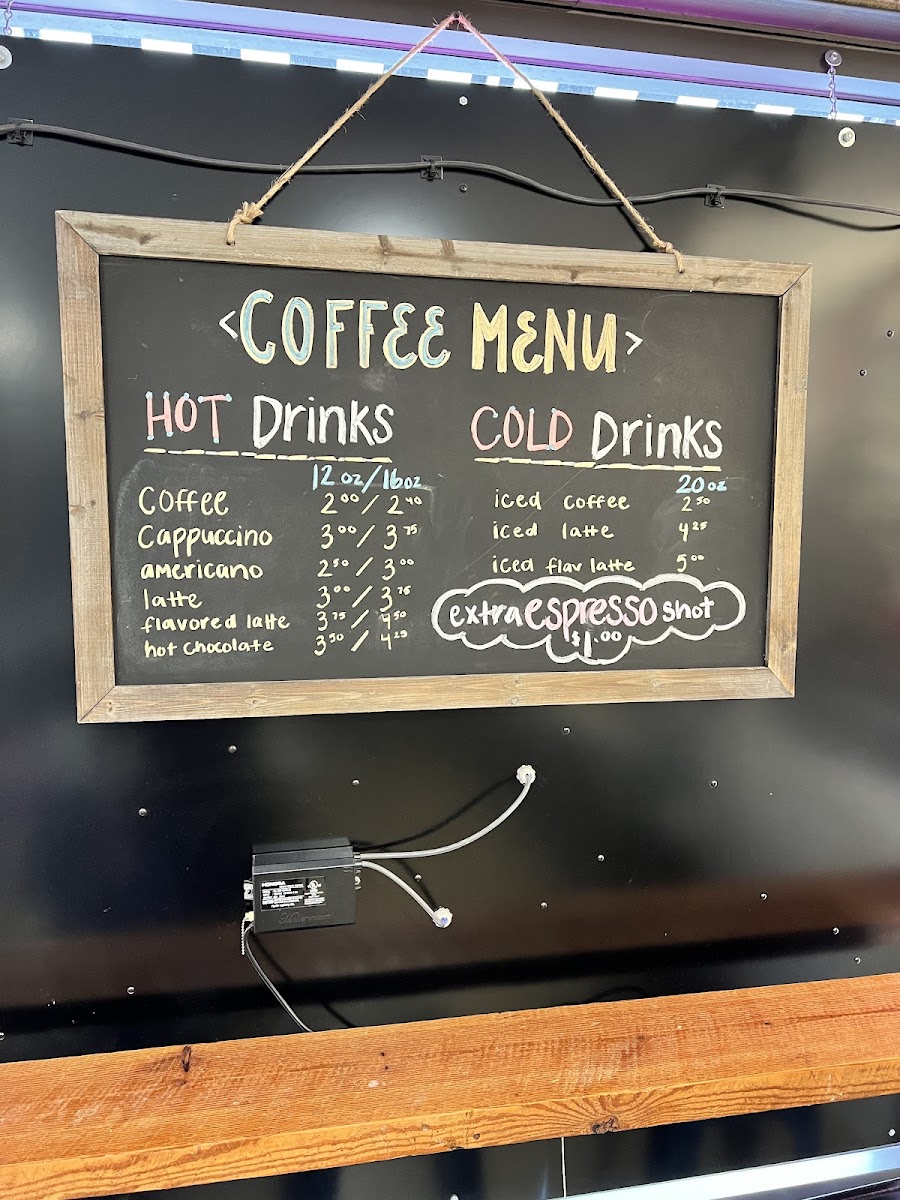 <COFFEE MENU>
HOT Drinks
12 oz/16oz
Coffee 2⁰⁰ / 2⁴⁰
Cappuccino 3⁰⁰ / 3⁷⁵
americano 2⁵⁰ / 3⁰⁰
latte 3⁰⁰ / 3⁷⁵
flavored latte 3⁷⁵ / 4⁵⁰
hot chocolate 3⁵⁰ / 4²⁵
COLD Drinks
20 oz
iced coffee 2⁵⁰
iced latte 4²⁵
iced flav latte 5⁰⁰
extra espresso shot
$1.00